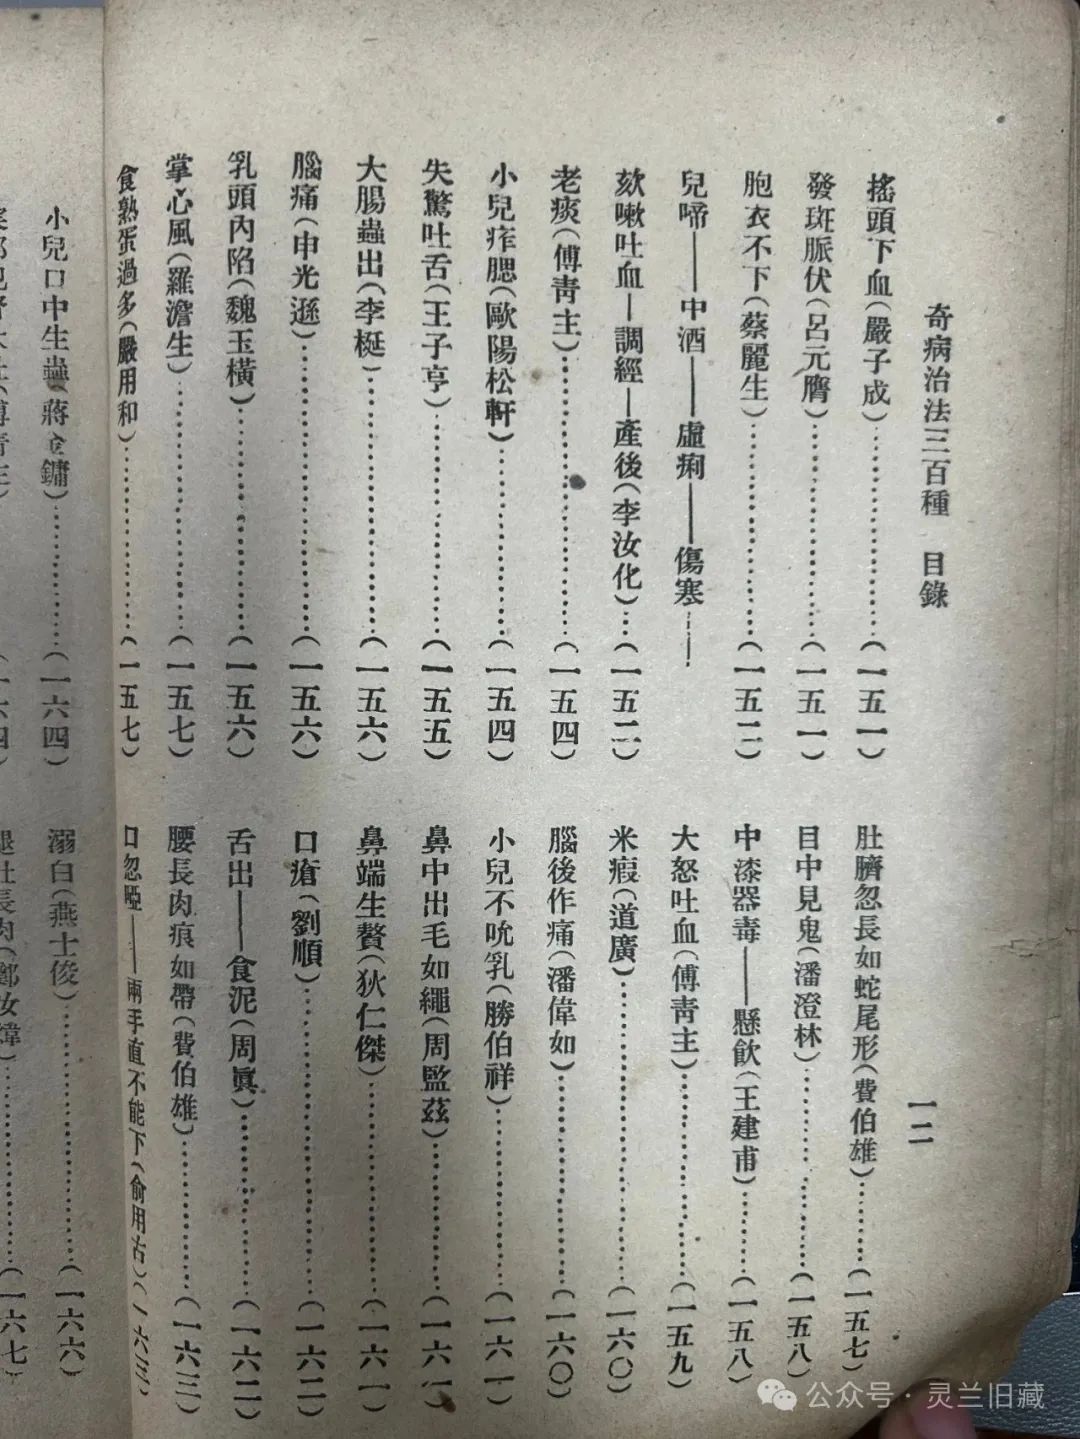 奇病治法三百種 目錄 一二
搖頭下血(嚴子成)…(一五一)
發斑脈伏(呂元膺)…(一五一)
胞衣不下(蔡麗生)…(一五二)
兒啼——中酒——虛痢——傷寒——
欬嗽吐血—調經—產後(李汝化)…(一五二)
老痰(傅靑主)…(一五四)
小兒痄腮(歐陽松軒)…(一五四)
失驚吐舌(王子亨)…(一五五)
大腸蟲出(李梴)…(一五六)
腦痛(申光遜)…(一五六)
乳頭內陷(魏玉橫)…(一五六)
掌心風(羅澹生)…(一五七)
食熟蛋過多(嚴用和)…(一五七)
肚臍忽長如蛇尾形(費伯雄)…(一五七)
目中見鬼(潘澄林)…(一五八)
中漆器毒——懸飲(王建甫)…(一五八)
大怒吐血(傅靑主)…(一五九)
米瘕(道廣)…(一六〇)
腦後作痛(潘偉如)…(一六〇)
小兒不吮乳(勝伯祥)…(一六一)
鼻中出毛如繩(周監茲)…(一六一)
鼻端生贅(狄仁傑)…(一六一)
口瘡(劉順)…(一六二)
舌出——食泥(周眞)…(一六二)
腰長肉痕如帶(費伯雄)…(一六三)
口忽啞——兩手直不能下(俞用古)(一六三)
小兒口中生蟲(蔣金鏞)…(一六四)
(一六四)
溺白(燕士俊)…(一六六)
腿肚長肉(鄭汝煒)…(一六七)
公众号·灵兰旧藏